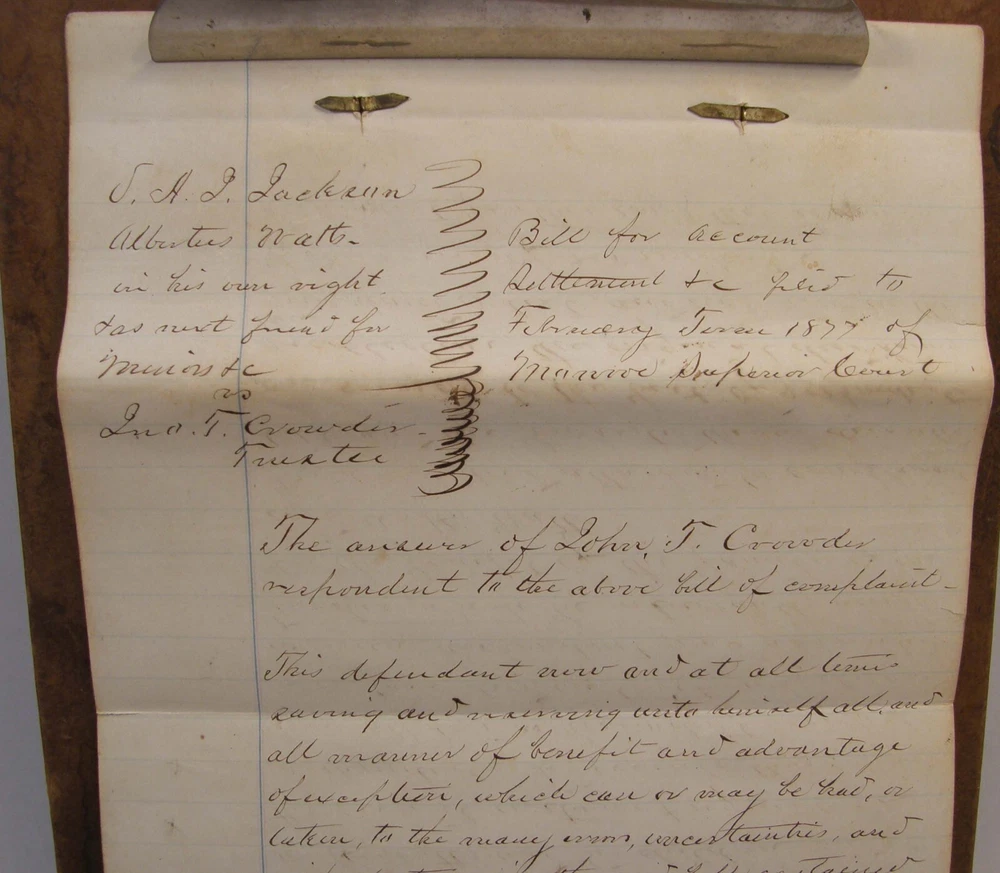 J. H. D. Jackson
Albertus Watts
in his own right
& as next friend for
Minors &c
vs
Jno. T. Crowder
Trustee
Bill for account
Settlement &c filed to
February Term 1877 of
Monroe Superior Court
The answer of John. T. Crowder
respondent to the above bill of complaint
This defendant now and at all times
saving and reserving unto himself all, and
all manner of benefit and advantage
of exception, which can or may be had, or
taken, to the many errors, uncertainties, and
contained